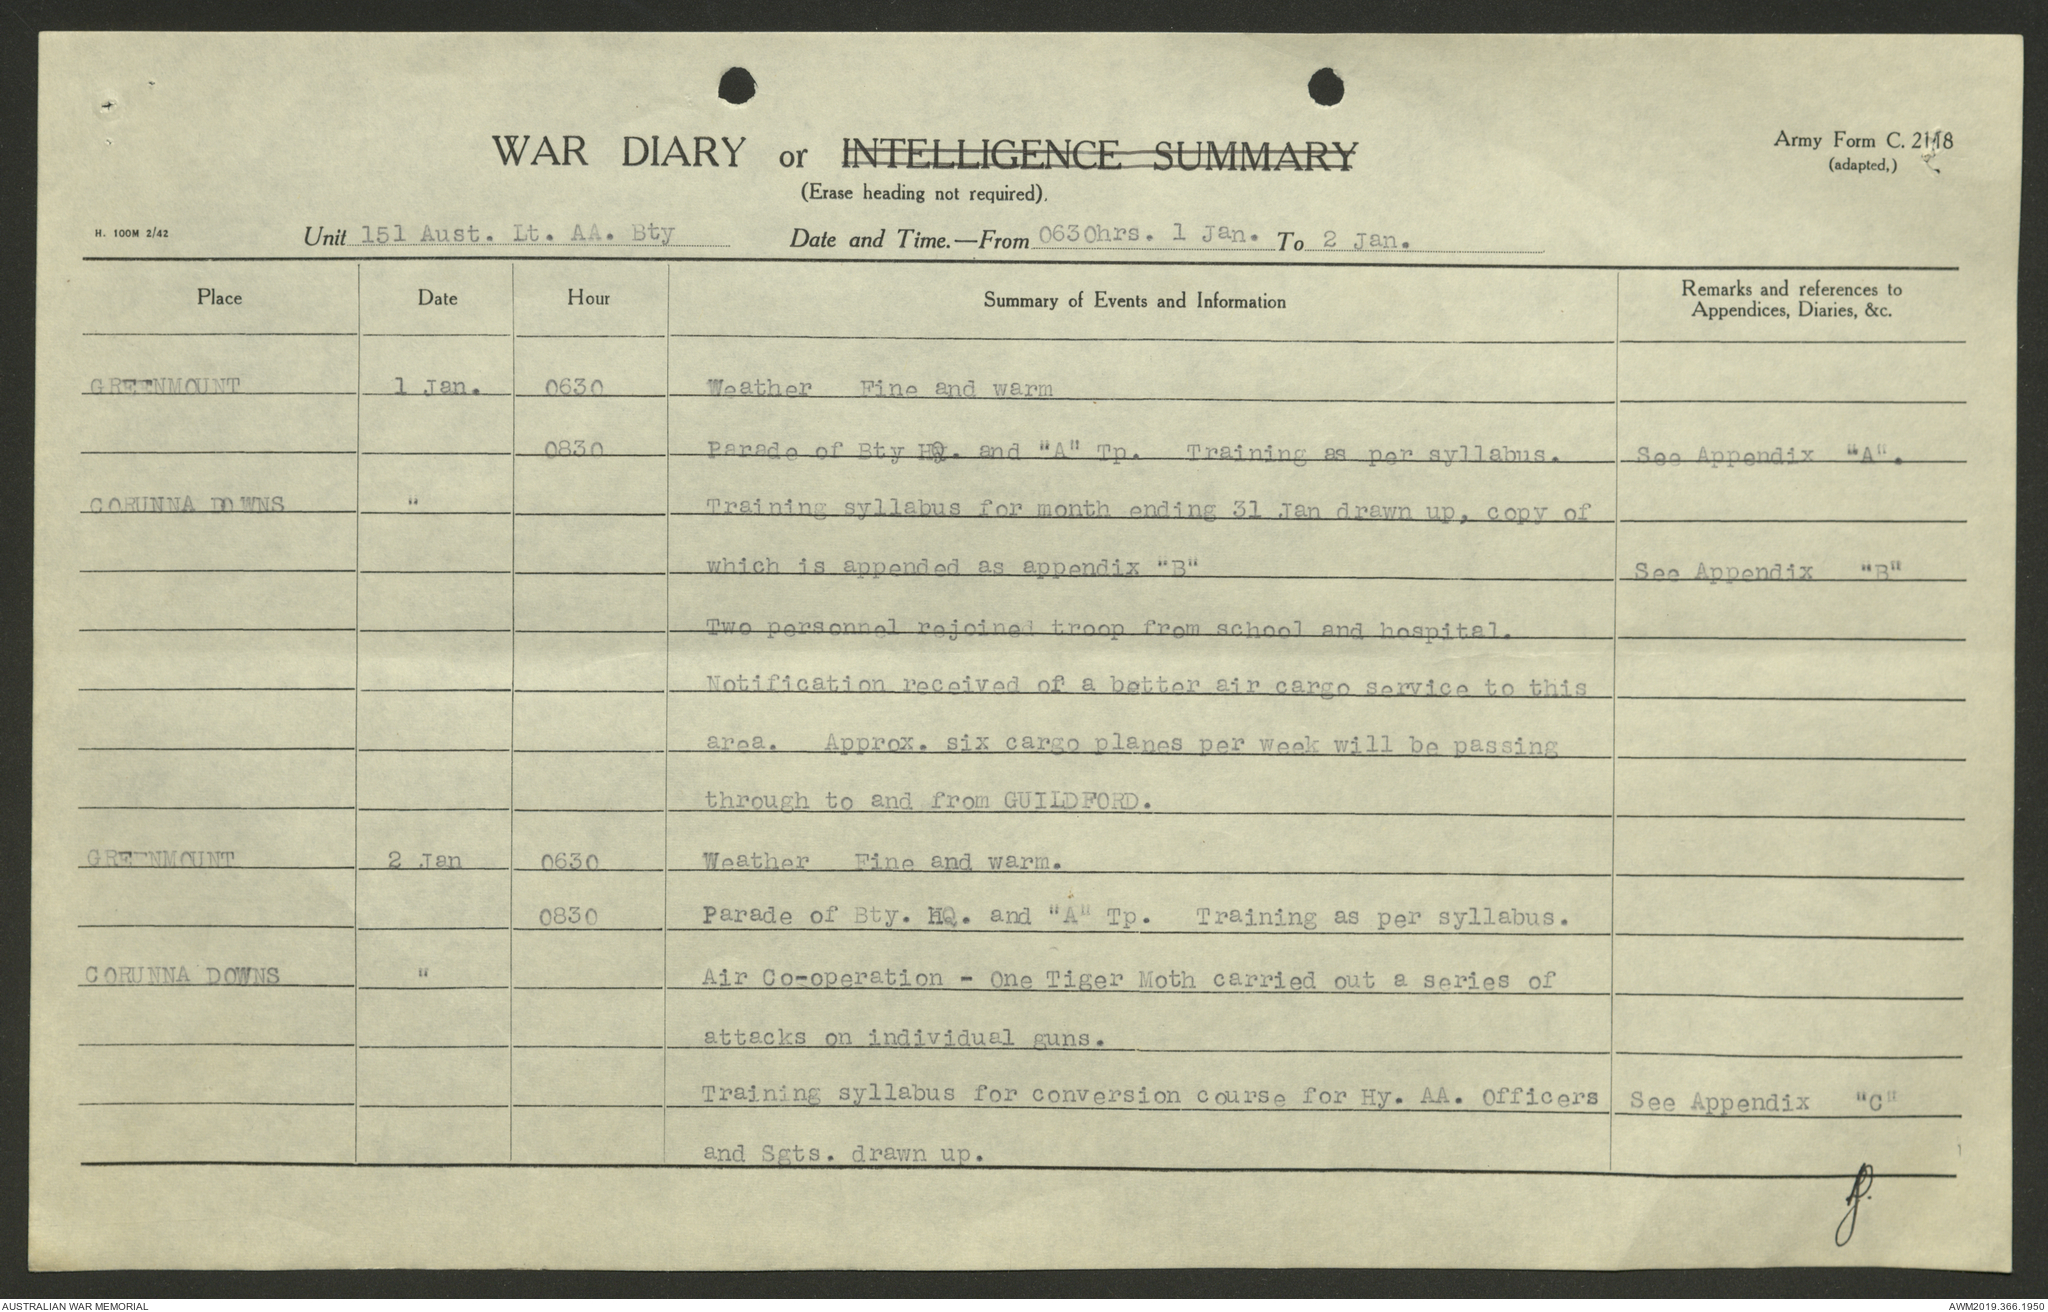 WAR DIARY or INTELLIGENCE SUMMARY
(Erase heading not required).
Army Form C. 2118
(adapted,)
H. 100M 2/42
Unit 151 Aust. Lt. AA. Bty Date and Time.—From 0630hrs. 1 Jan. To 2 Jan.
Place Date Hour Summary of Events and Information Remarks and references to
Appendices, Diaries, &c.
GREENMOUNT 1 Jan. 0630 Weather Fine and warm
0830 Parade of Bty HQ. and "A" Tp. Training as per syllabus. See Appendix "A".
CORUNNA DOWNS " Training syllabus for month ending 31 Jan drawn up, copy of
which is appended as appendix "B" See Appendix "B"
Two personnel rejoined troop from school and hospital.
Notification received of a better air cargo service to this
area. Approx. six cargo planes per week will be passing
through to and from GUILDFORD.
GREENMOUNT 2 Jan 0630 Weather Fine and warm.
0830 Parade of Bty. HQ. and "A" Tp. Training as per syllabus.
CORUNNA DOWNS " Air Co-operation - One Tiger Moth carried out a series of
attacks on individual guns.
Training syllabus for conversion course for Hy. AA. Officers See Appendix "C"
and Sgts. drawn up.
AUSTRALIAN WAR MEMORIAL
AWM2019.366.1950